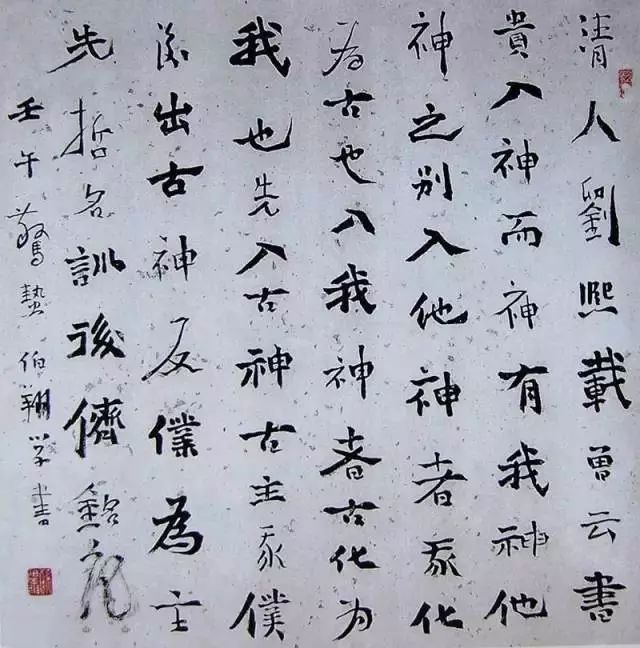 清人劉熙載曾云書
貴入神而神有我神他
神之別入他神者我化
為古也入我神者古化为
我也先入古神古主我僕
後出古神反僕為主
先哲名訓後儕
壬午驚蟄伯翔学書